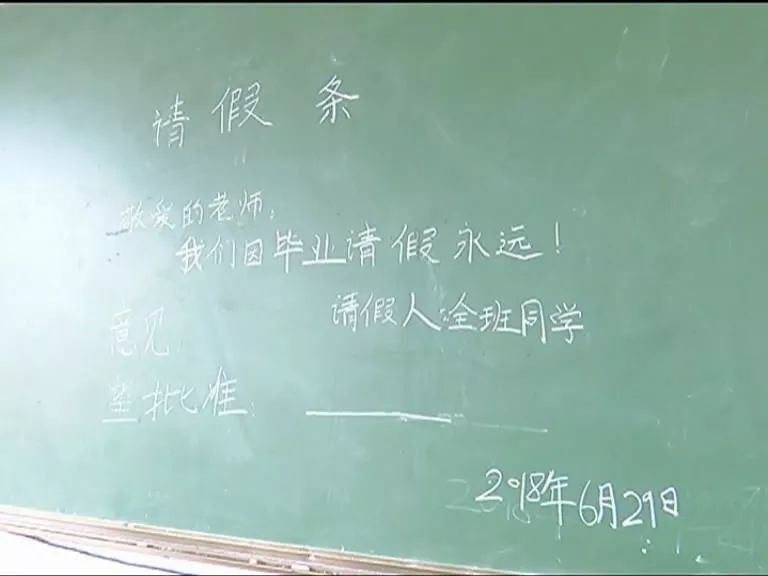 请假条
敬爱的老师:
我们因毕业请假永远!
请假人:全班同学
意见:
批准:
2018年6月29日